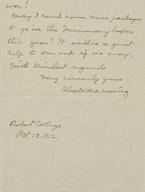 war!
May I send some more packages
to go in the Missionary boxes
this year? It will be a great
help to me if we may.
With kindest regards
Very sincerely yours
Manning
Robert College
Oct. 13, 1912